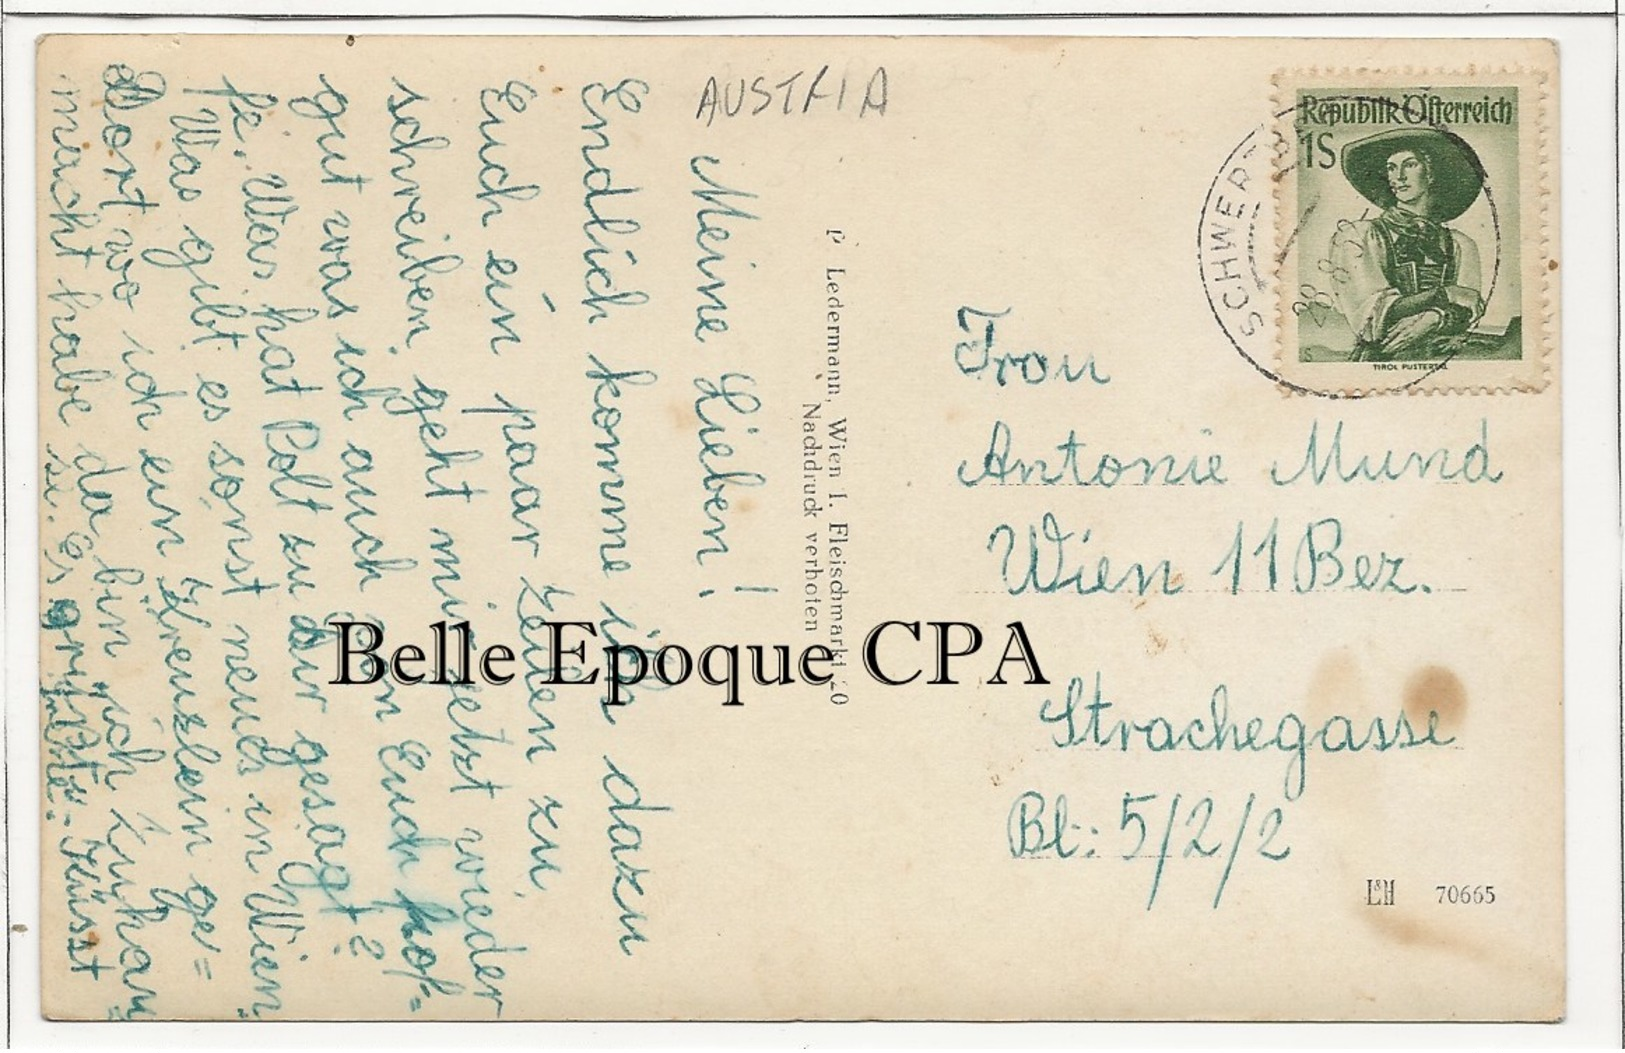 AUSTRIA
Meine Lieben!
Endlich komme ich dazu
Euch ein paar Zeilen zu
schreiben, geht mir jetzt wieder
gut was ich auch von Euch hof=
fe. Was hat Poli zu dir gesagt?
Was gibt es sonst neues in Wien
Dort wo ich ein Kreuzlein ge=
macht habe da bin ich zuhau
se. Es grüßt u. Küsst
P. Ledermann, Wien I. Fleischmarkt 20
Nachdruck verboten
Republik Österreich
1S
TIROL PUSTERTAL
SCHWERT
28.8.53
Frau
Antonie Mund
Wien 11 Bez.
Strachegasse
Bl: 5/2/2
L&H 70665
Belle Epoque CPA